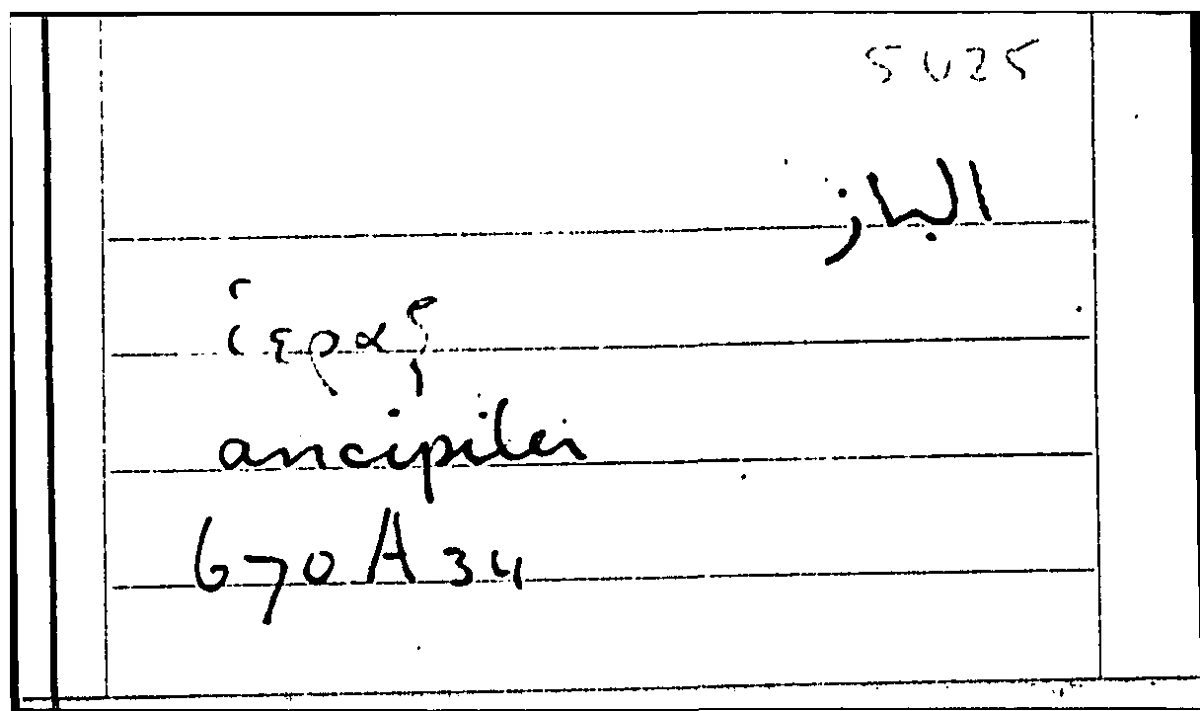 5025
الباز
ἱεραξ
ancipiter
670 A 34